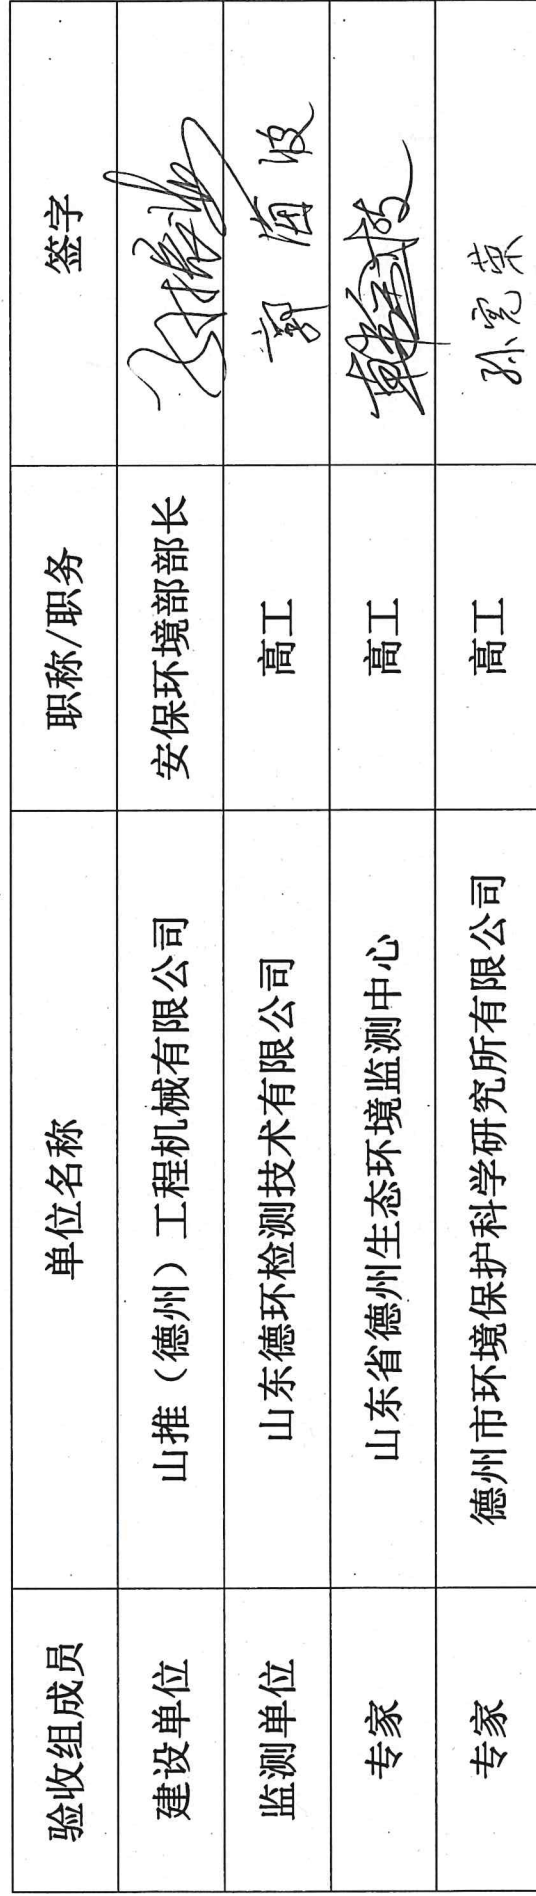 验收组成员 单位名称 职称/职务 签字
建设单位 山推（德州）工程机械有限公司 安保环境部部长
监测单位 山东德环检测技术有限公司 高工
专家 山东省德州生态环境监测中心 高工
专家 德州市环境保护科学研究所有限公司 高工 孙宪荣